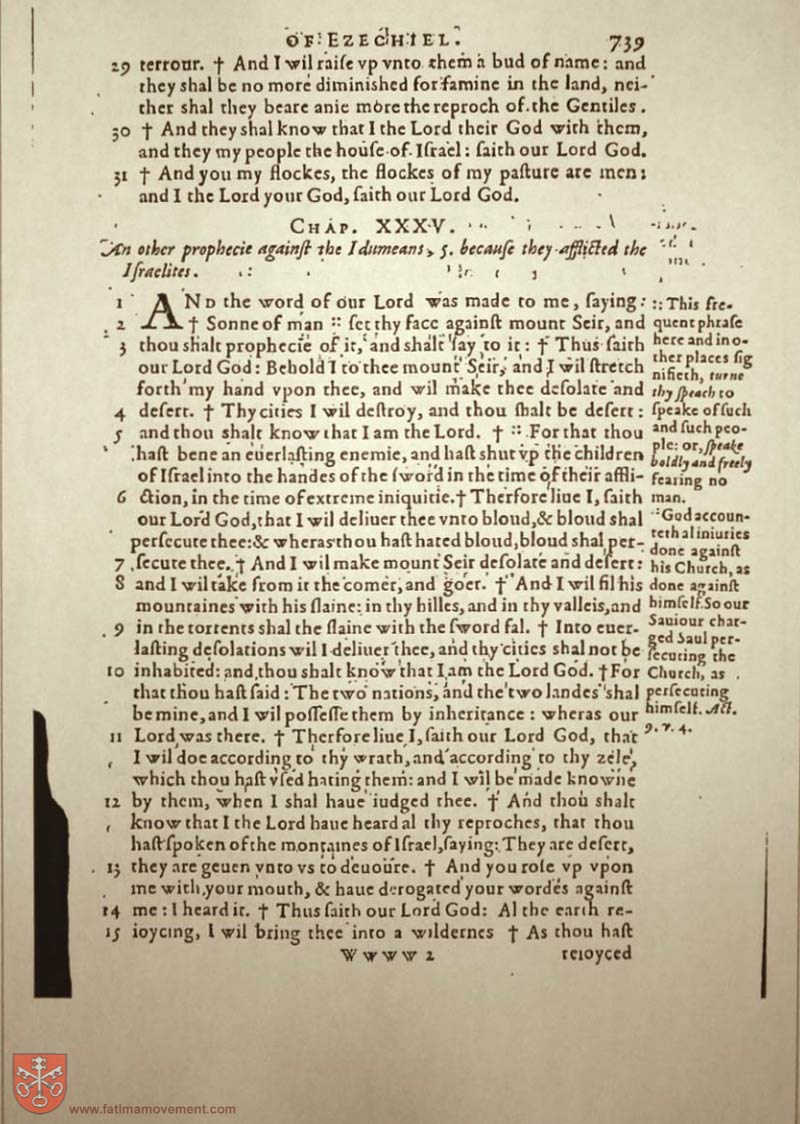 OF EZECHIEL. 739
29 terrour. † And I wil raiſe vp vnto them a bud of name: and
they shal be no more diminished for famine in the land, nei-
ther shal they beare anie more the reproch of the Gentiles.
30 † And they shal know that I the Lord their God with them,
and they my people the houſe of Iſrael: ſaith our Lord God.
31 † And you my flockes, the flockes of my paſture are men:
and I the Lord your God, ſaith our Lord God.
CHAP. XXXV.
An other prophecie againſt the Idumeans, 5. becauſe they afflicted the
Iſraelites.
1 AND the word of our Lord was made to me, ſaying:
2 † Sonne of man :: ſet thy face againſt mount Seir, and
3 thou shalt prophecie of it, and shalt ſay to it: † Thus ſaith
our Lord God: Behold I to thee mount Seir, and I wil ſtretch
forth my hand vpon thee, and wil make thee deſolate and
4 deſert. † Thy cities I wil deſtroy, and thou shalt be deſert:
5 and thou shalt know that I am the Lord. † :: For that thou
haſt bene an euerlaſting enemie, and haſt shut vp the children
of Iſrael into the handes of the ſword in the time of their affli-
6 ction, in the time of extreme iniquitie. † Therfore liue I, ſaith
our Lord God, that I wil deliuer thee vnto bloud, & bloud shal
perſecute thee: & wheras thou haſt hated bloud, bloud shal per-
7 ſecute thee. † And I wil make mount Seir deſolate and deſert:
8 and I wil take from it the comer, and goer. † And I wil fil his
mountaines with his ſlaine: in thy hilles, and in thy valleis, and
9 in the torrents shal the ſlaine with the ſword fal. † Into euer-
laſting deſolations wil I deliuer thee, and thy cities shal not be
10 inhabited: and thou shalt know that I am the Lord God. † For
that thou haſt ſaid: The two nations, and the two landes shal
be mine, and I wil poſſeſſe them by inheritance: wheras our
11 Lord was there. † Therfore liue I, ſaith our Lord God, that
I wil doe according to thy wrath, and according to thy zele,
which thou haſt vſed hating them: and I wil be made knowne
12 by them, when I shal haue iudged thee. † And thou shalt
know that I the Lord haue heard al thy reproches, that thou
haſt ſpoken of the montaines of Iſrael, ſaying: They are deſert,
13 they are geuen vnto vs to deuoure. † And you roſe vp vpon
me with your mouth, & haue derogated your wordes againſt
14 me: I heard it. † Thus ſaith our Lord God: Al the earth re-
15 ioycing, I wil bring thee into a wildernes † As thou haſt
Wwww 2 reioyced
:: This fre-
quent phraſe
here and in o-
ther places ſig
nifieth, turne
thy ſpeach to
ſpeake of ſuch
and ſuch peo-
ple: or, ſpeake
boldly and freely
fearing no
man.
:: God accoun-
teth al iniuries
done againſt
his Church, as
done againſt
himſelf. So our
Sauiour char-
ged Saul per-
ſecuting the
Church, as
perſecuting
himſelf. Act.
9. v. 4.
www.fatimamovement.com